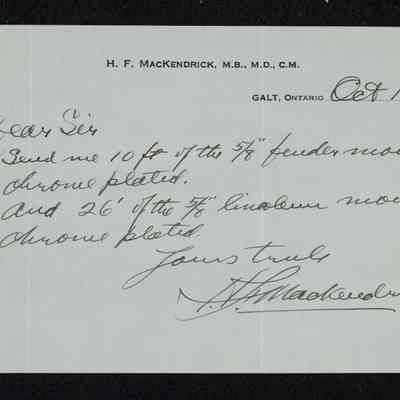 H. F. MacKendrick, M.B., M.D., C.M.
Galt, Ontario Oct 1
Dear Sir
Send me 10 ft of the 5/8" fender mou
chrome plated.
And 26' of the 5/8" linoleum mou
chrome plated.
Yours truly
H F Mackendri